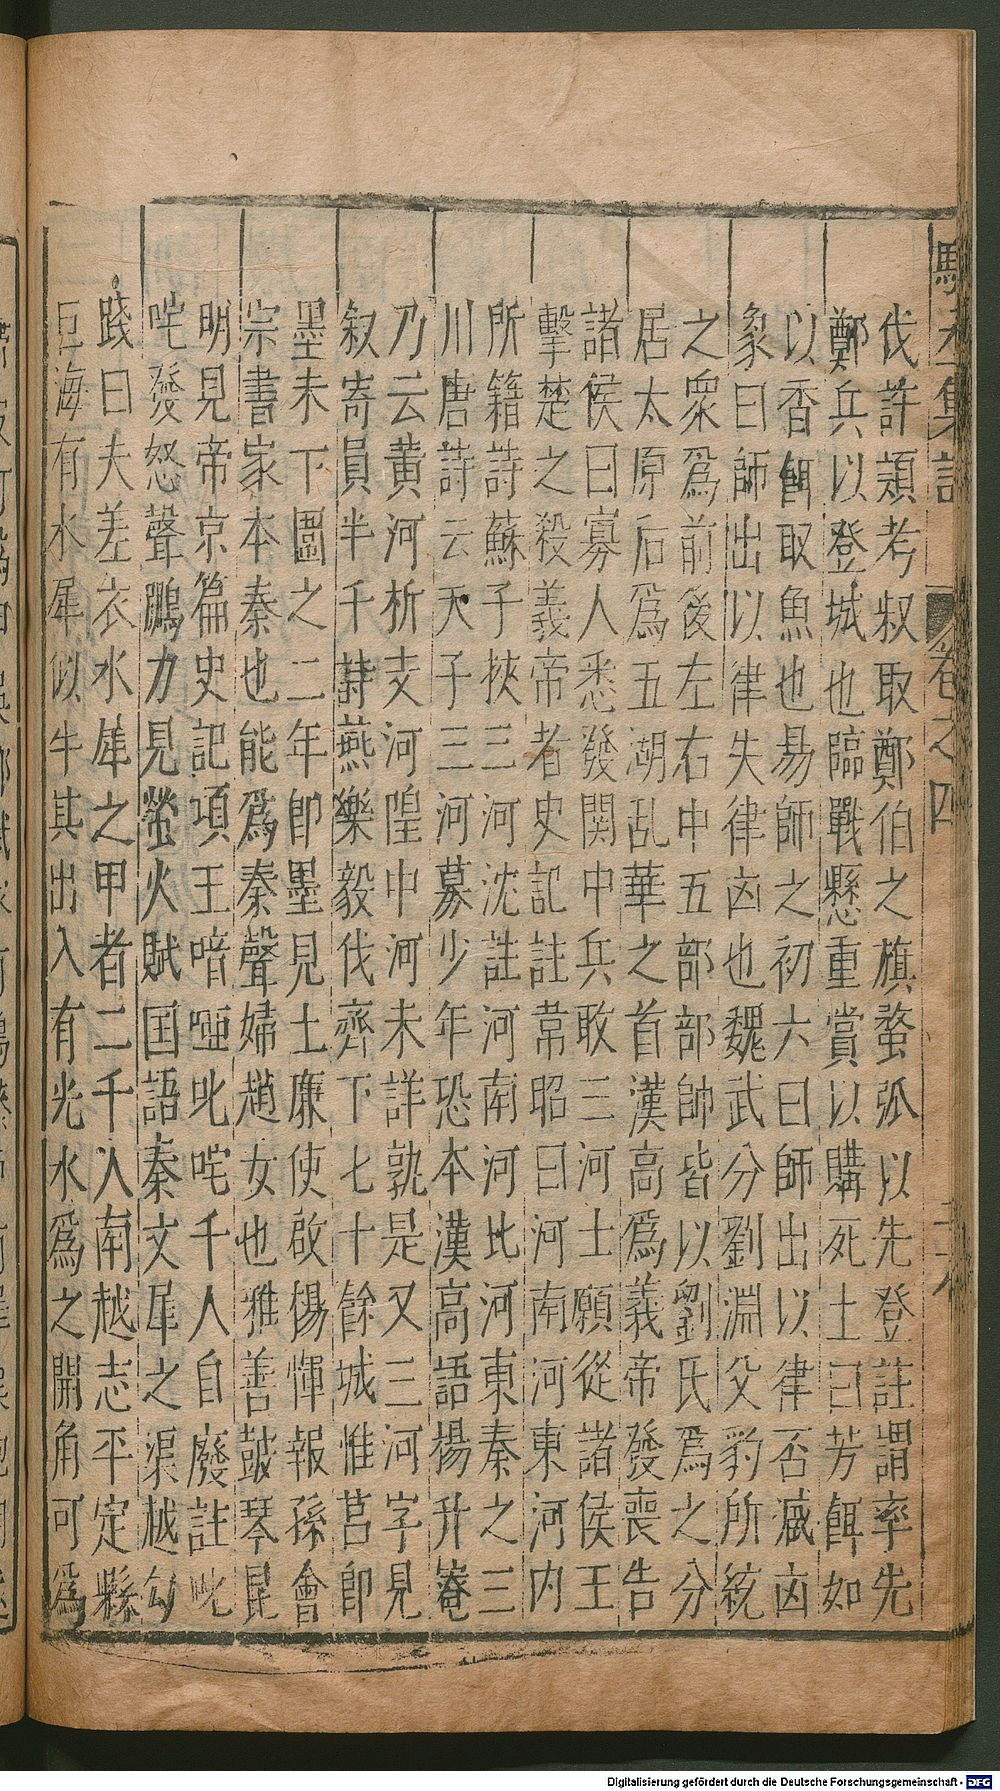 伐許潁考叔取鄭伯之旗蝥弧以先登註謂率先
鄭兵以登城也臨戰懸重賞以購死士曰芳餌如
以香餌取魚也易師之初六曰師出以律否臧凶
象曰師出以律失律凶也魏武分劉淵父豹所統
之眾爲前後左右中五部部帥皆以劉氏爲之分
居太原后爲五湖乱華之首漢高爲義帝發喪告
諸侯曰寡人悉發関中兵敢三河士願從諸侯王
擊楚之殺義帝者史記註常昭曰河南河東河内
所籍詩蘇子挾三河沈註河南河北河東秦之三
川唐詩云天子三河募少年恐本漢高語揚升菴
乃云黃河析支河隍中河未詳孰是又三河字見
叙寄員半千詩燕樂毅伐齊下七十餘城惟莒即
墨未下圍之二年即墨見士廉使啟楊惲報孫會
宗書家本秦也能爲秦聲婦趙女也雅善鼓琴昆
明見帝京篇史記項王喑啞叱咤千人自廢註叱
咤發怒聲鵰力見螢火賦国語秦文犀之渠越勾
踐曰夫差衣水犀之甲者二千人南越志平定縣
巨海有水犀似牛其出入有光水爲之開角可爲
集註
卷之四
Digitalisierung gefördert durch die Deutsche Forschungsgemeinschaft - DFG